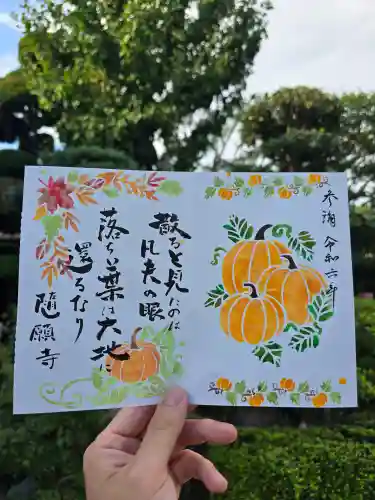 参拝 令和六年
散ると見たのは
凡夫の眼
落ち葉は大地に
還るなり
隨願寺